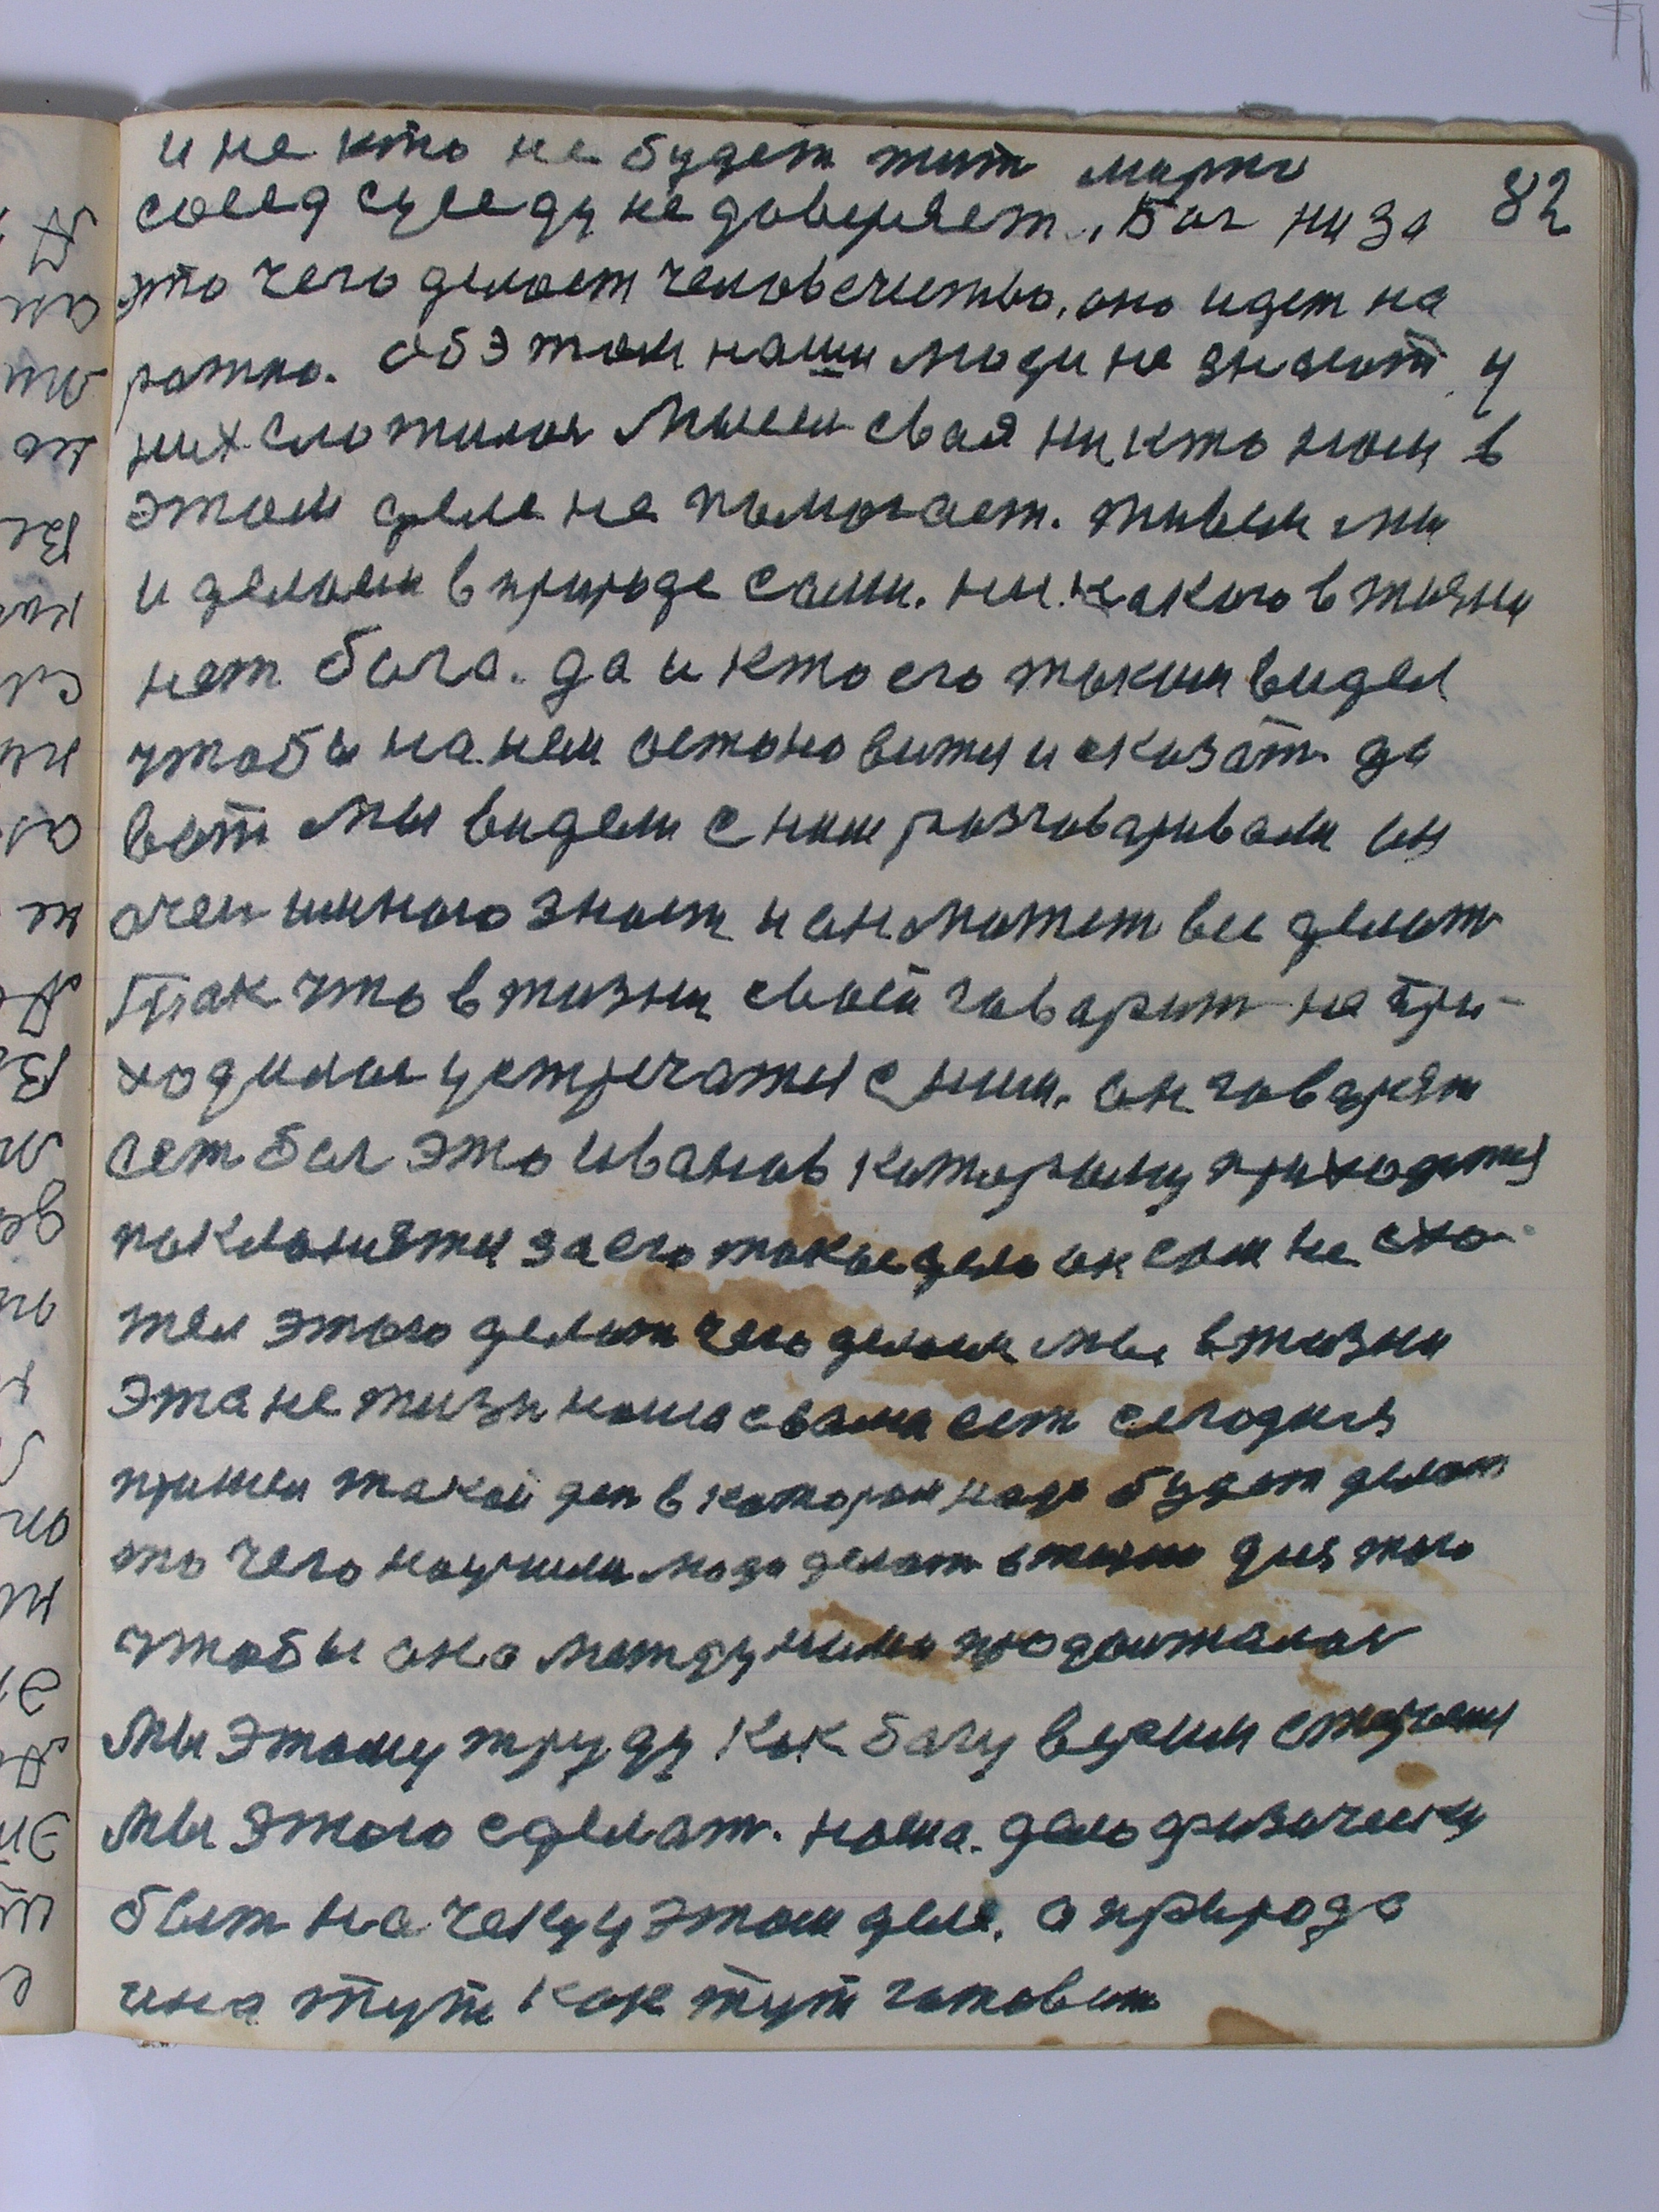 и не кто не будет жит мирно
82
сосед суседу не доверяет, Бог ни за
это чего делает человечество, оно идет на
ратно. об этом наши люди не знают у
них сложилос мысля свая ни кто нам в
этом деле не помогает. живем мы
и делаем в природе сами. ни какого в жизни
нет бога. да и кто его таким видел
чтобы на нем остоновится и сказат да
вот мы видели с ним разговаривали он
очен много знает и он может все делат
так что в жизни своей говарит не при-
ходилос устречатся с ним. он говарят
ест бог это Иванов каторому приходится
поклонятся за его такое дело он сам не схо-
тел этого делат чего делаем мы в жизни
эта не жизн наша с вами ест сегодня
пришел такой ден в котором надо будет делат
то чего научили люди делат в жизни для того
чтобы она между ними продолжалос
мы этому труду как богу верим стараемся
мы этого сделат. наша дело физически
быт на чеку у этом деле. а природа
она тут как тут готовит